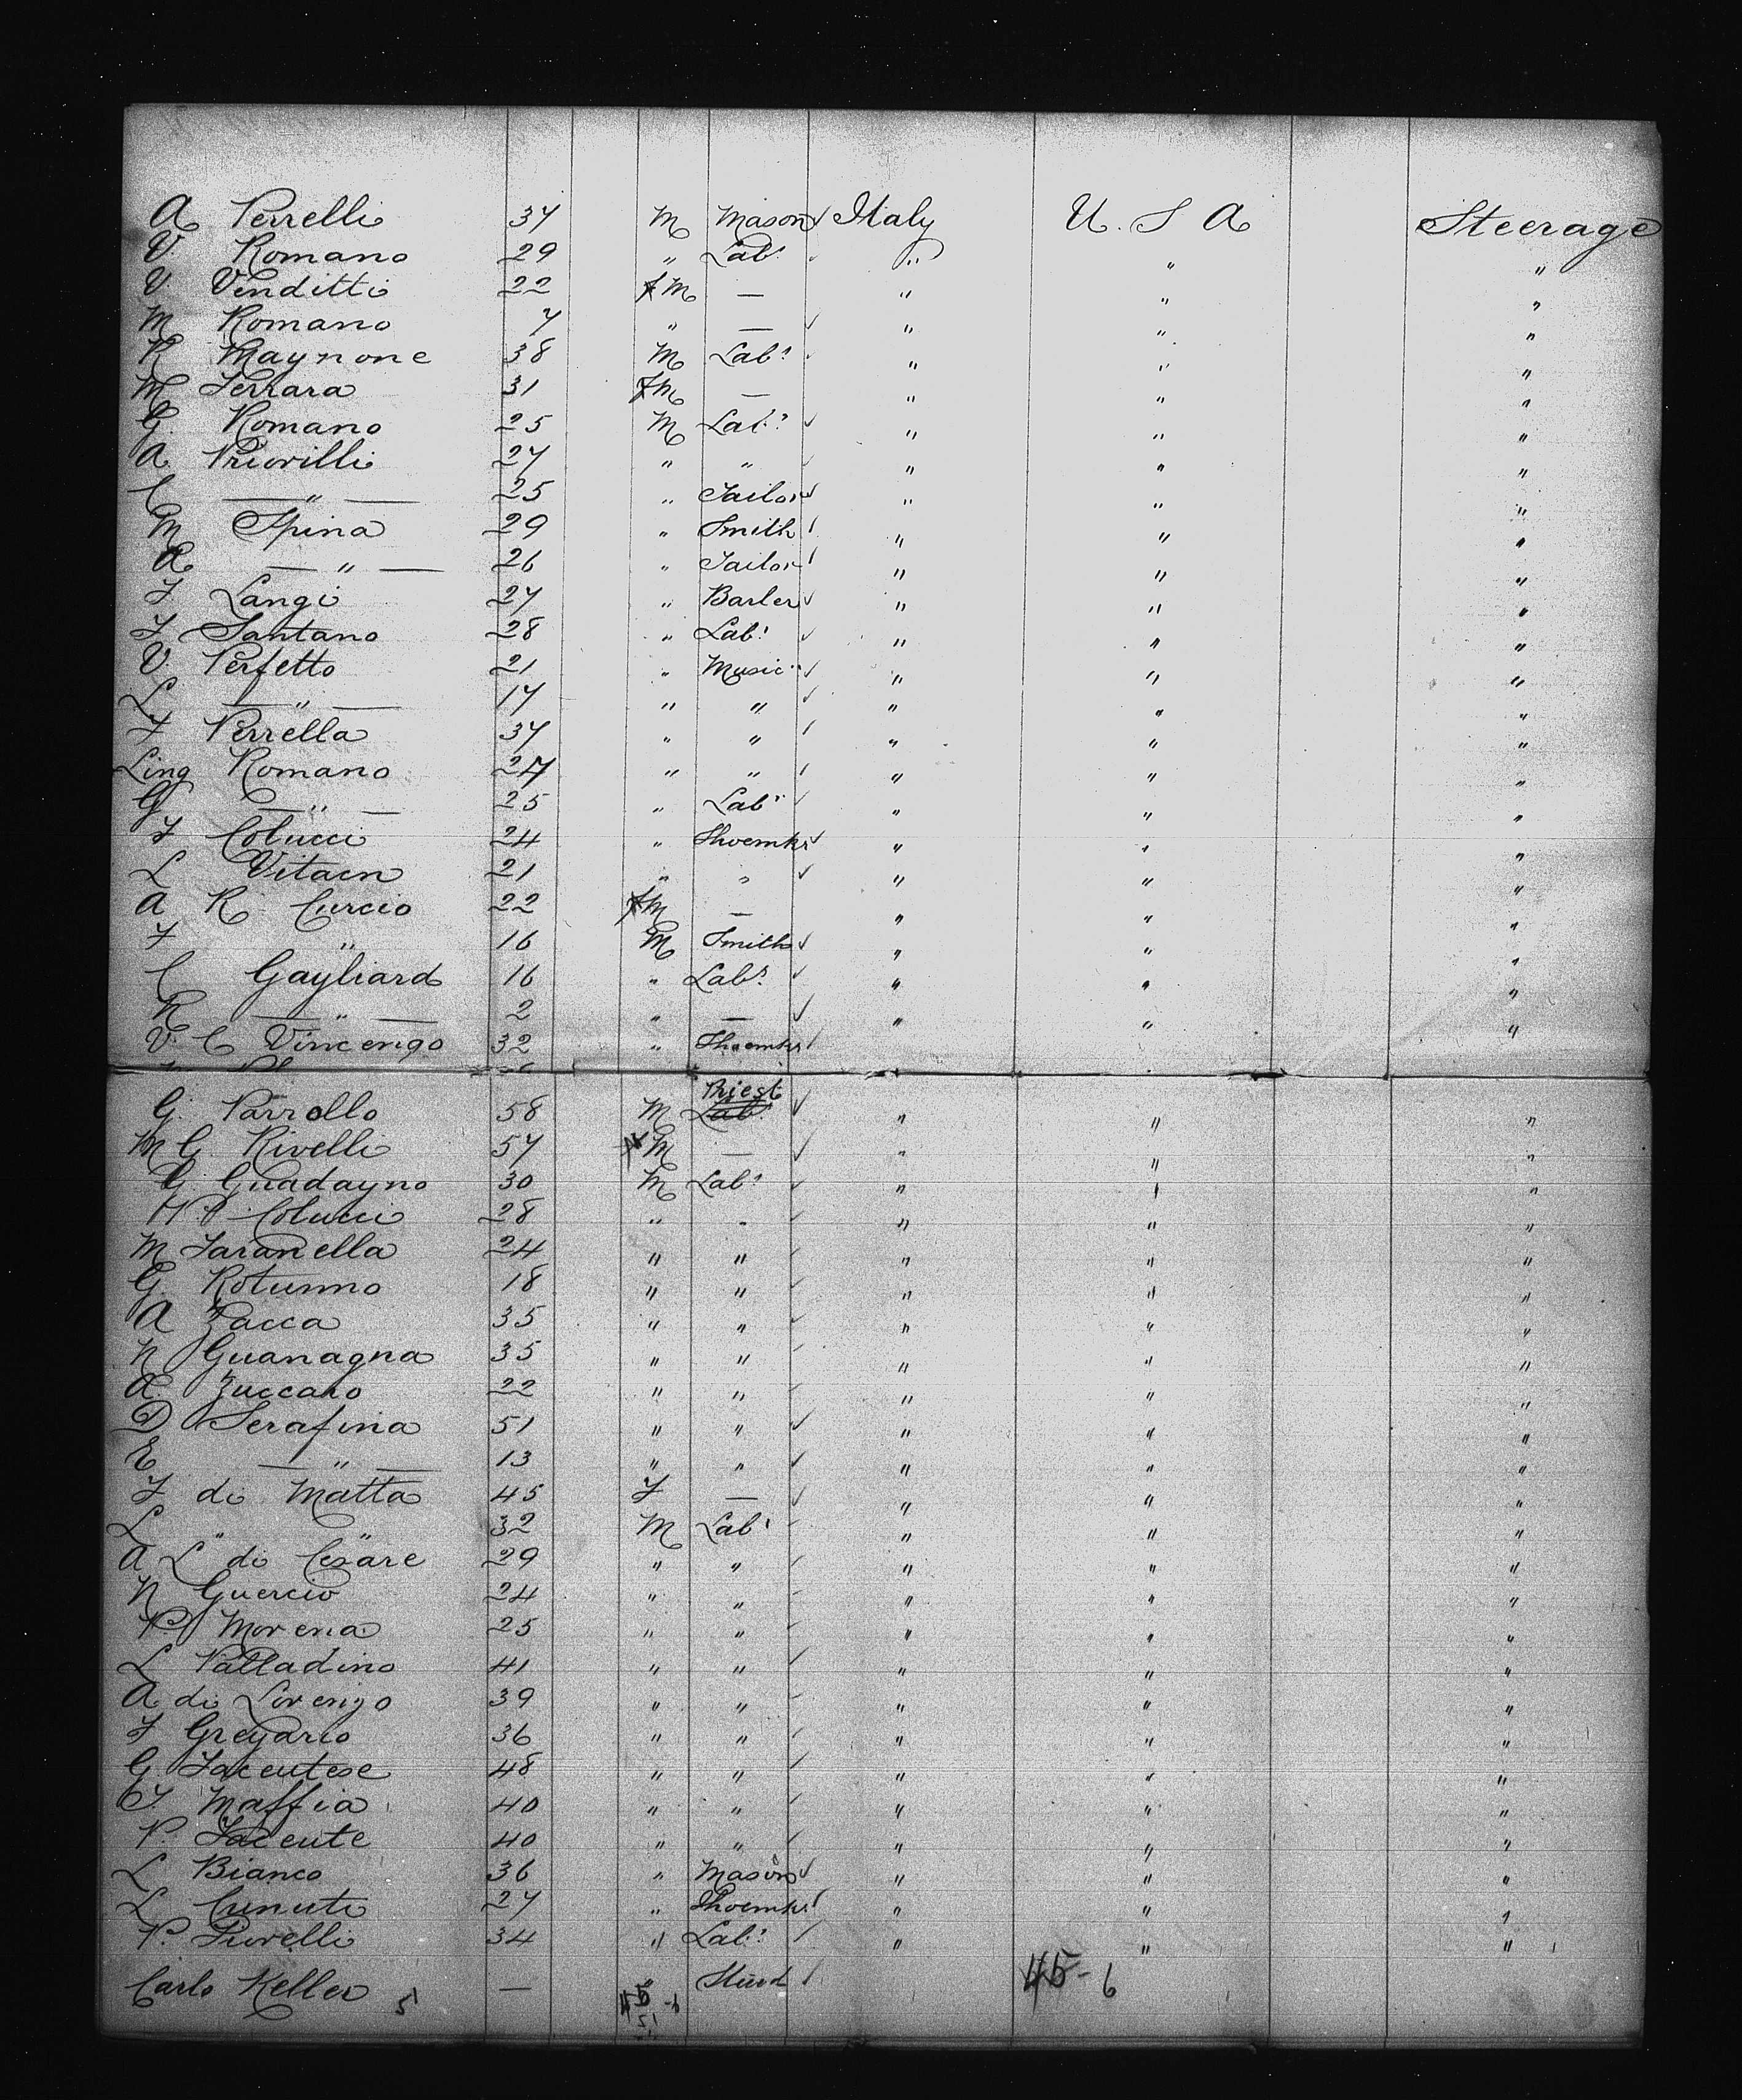 A Perrelli 37 M Mason ✓ Italy U. S A Steerage
V. Romano 29 " Lab.r " " "
V. Venditti 22 M — " " "
M Romano 7 " — ✓ " " "
R Maynone 38 M Lab.r " " "
M Ferrara 31 M — " " "
G. Romano 25 M Lab.r ✓ " " "
A Priorilli 27 " " ✓ " " "
C — " — 25 " Tailor ✓ " " "
M Spina 29 " Smith ✓ " " "
A — " — 26 " Tailor ✓ " " "
F Langi 27 " Barber ✓ " " "
F Santano 28 " Lab.r ✓ " " "
V. Perfetto 21 " Music ✓ " " "
L — " — 17 " " ✓ " " "
F Perrella 37 " " ✓ " " "
Ling Romano 27 " " ✓ " " "
G — " — 25 " Lab.r ✓ " " "
F Colucci 24 " Shoemkr ✓ " " "
L Vitacn 21 " " ✓ " " "
A R. Curcio 22 M — " " "
F " 16 M Smith ✓ " " "
C Gayliard 16 " Lab.r ✓ " " "
R — " — 2 " — ✓ " " "
V. C Vincenzo 32 " Shoemkr ✓
G. Parrollo 58 M Priest ✓ " " "
M G. Rivelli 57 M — ✓ " " "
G Guadayno 30 M Lab.r ✓ " " "
Colucci 28 " " ✓ " " "
M Faranella 24 " " ✓ " " "
G. Rotunno 18 " " ✓ " " "
A Zacca 35 " " ✓ " " "
N Guanagna 35 " " ✓ " " "
A. Zuccaro 22 " " ✓ " " "
D Serafina 51 " " ✓ " " "
E — " — 13 " " ✓ " " "
F di Matta 45 F — ✓ " " "
L " " 32 M Lab.r ✓ " " "
A L di Cesare 29 " " ✓ " " "
N Guercio 24 " " ✓ " " "
P. Morena 25 " " ✓ " " "
L Palladino 41 " " ✓ " " "
A di Lorenzo 39 " " ✓ " " "
F Gregario 36 " " ✓ " " "
G Facentese 48 " " ✓ " " "
F. Maffia 40 " " ✓ " " "
P. Facente 40 " " ✓ " " "
L Bianco 36 " Mason ✓ " " "
L Cunuti 27 " Shoemkr ✓ " " "
P. Fiorelli 34 " Lab.r ✓ " " "
Carlo Keller — " ✓
51 45 - 6 45 - 6
51